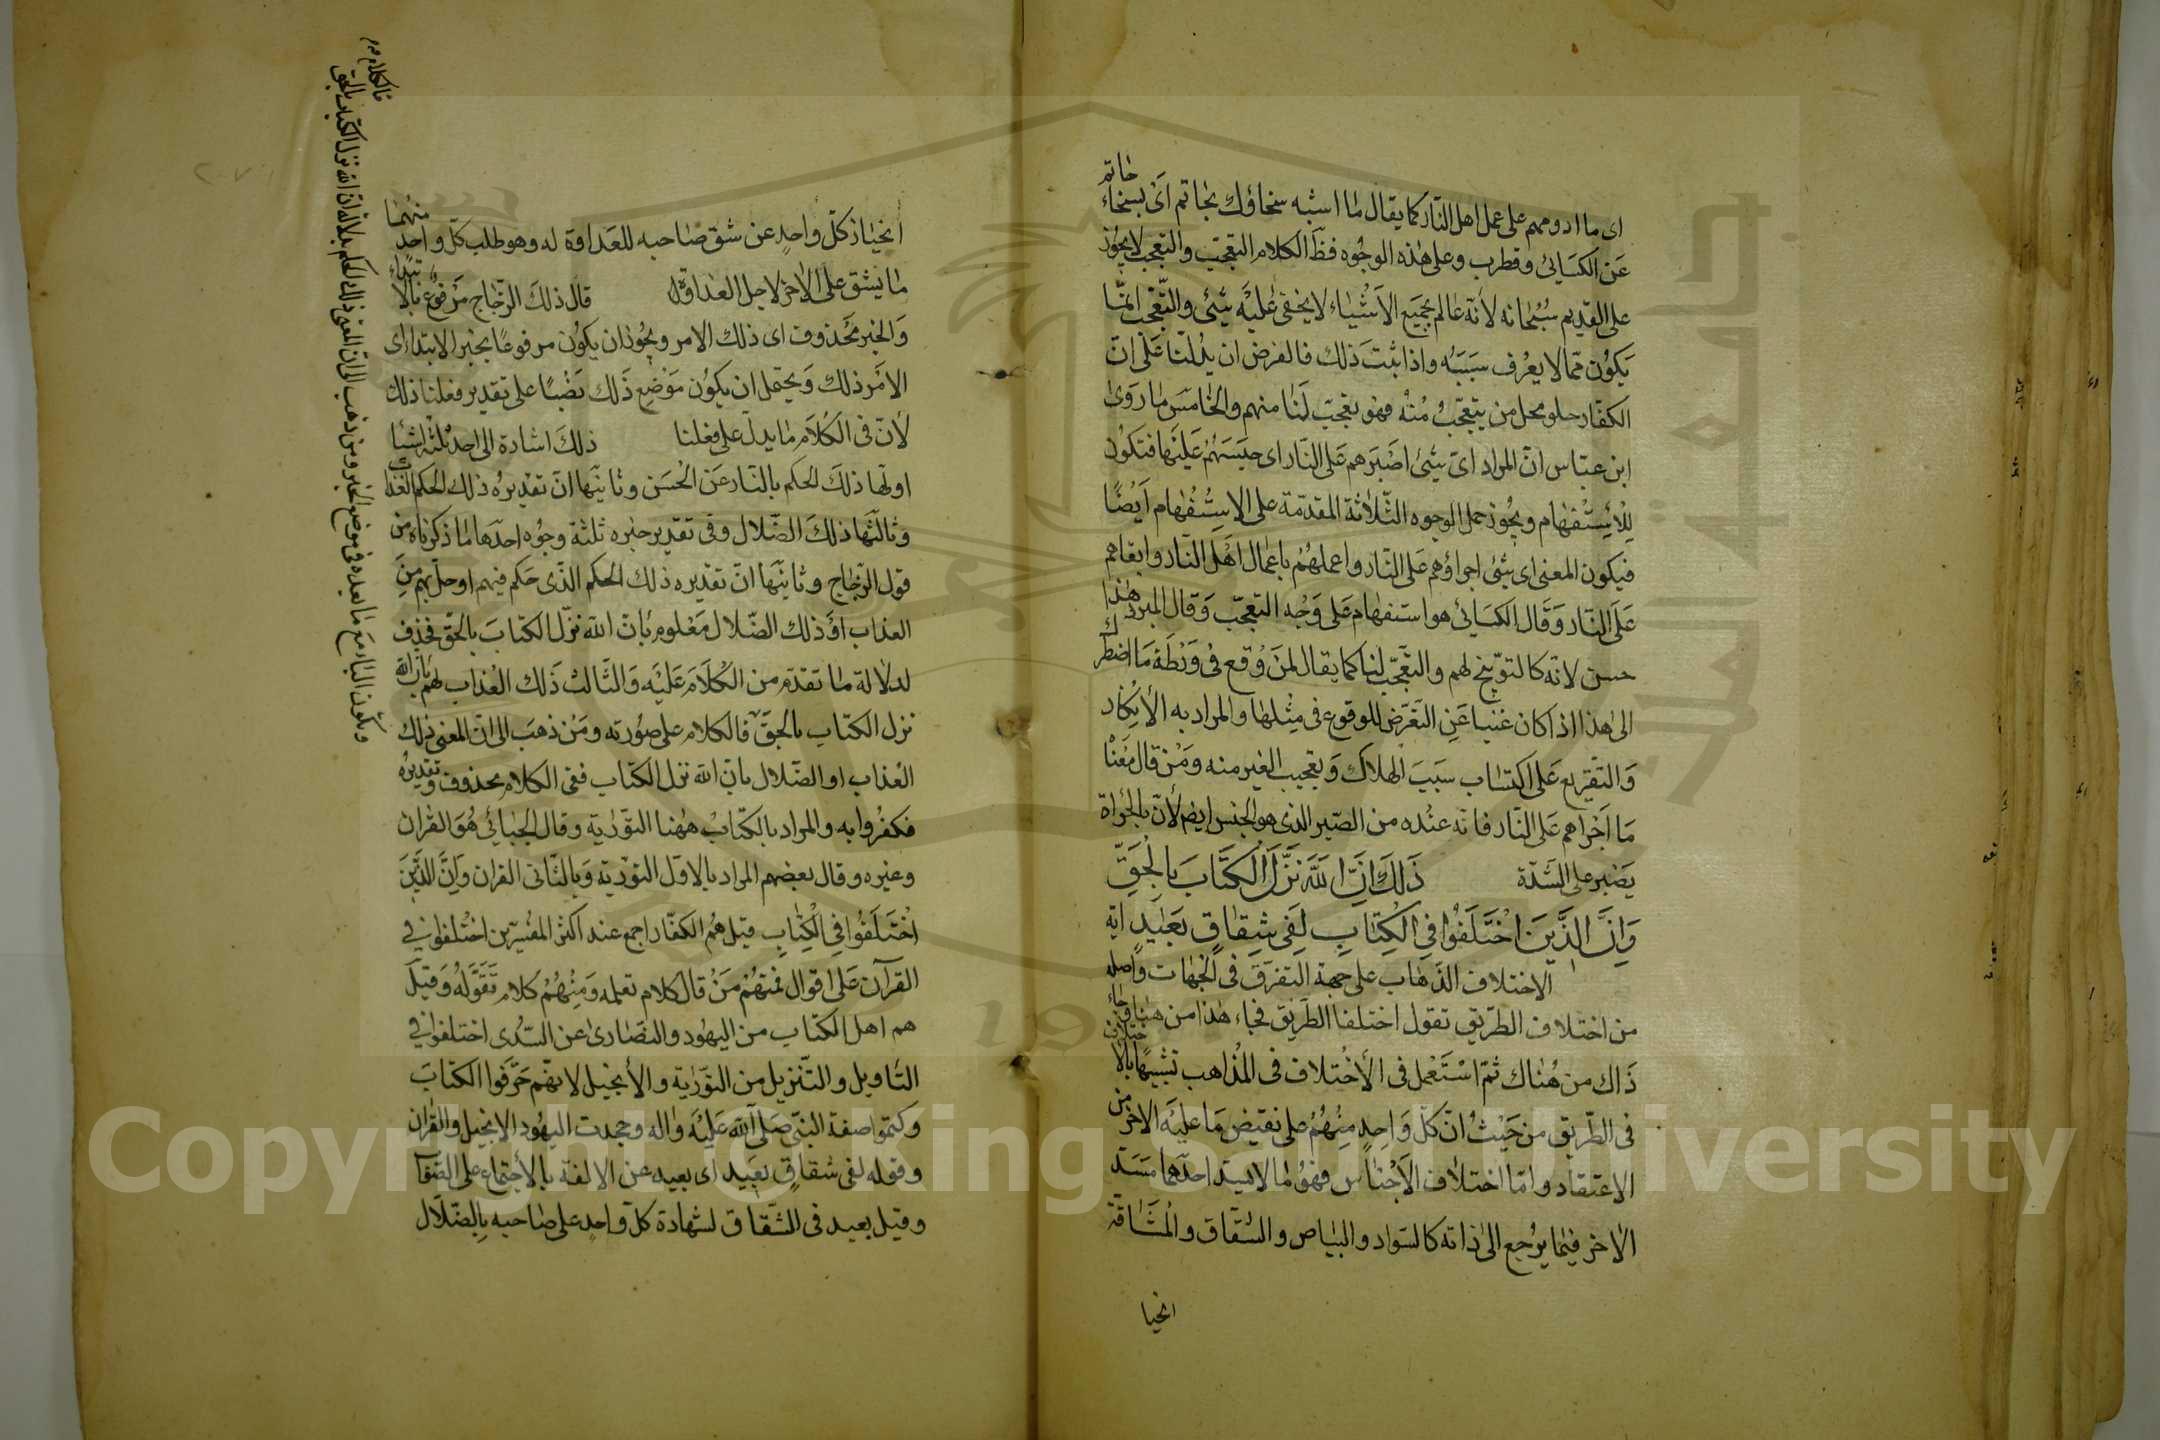 اى ما ادومهم على عمل اهل النّار كما يقال ما اشبه سخاؤك بحاتم اى بسخاء حاتم
عن الكسائى وقطرب وعلى هذه الوجوه فظ الكلام التعجّب والتعجّب لا يجوز
على القديم سبحانه لانّه عالم بجميع الاشياء لا يخفى عليه شئ والتّعجّب انّما
يكون ممّا لا يعرف سببه واذا ثبت ذلك فالغرض ان يدلّنا على انّ
الكفّار حلو محل من يتعجّب منه فهو تعجّب لنا منهم والخامس ما روى
ابن عبّاس انّ المراد اىّ شئ اصبرهم على النّار اى حبسهم عليها فتكون
للاستفهام ويجوز حمل الوجوه الثّلاثة المقدّمة على الاستفهام ايضًا
فيكون المعنى اى شئ اجراؤهم على النّار واعملهم باعمال اهل النّار وابقاهم
على النّار وقال الكسائى هو استفهام على وجه التعجّب وقال المبرد هذا
حسن لانّه كالتوبيخ لهم والتعجّب لنا كما يقال لمن وقع فى ورطة ما اضطرك
الى هذا اذا كان غنيا عن التعرّض للوقوع فى مثلها والمراد به الانكار
والتّقريع على اكتساب سبب الهلاك وتعجيب الغير منه ومن قال معنا
ما اجراهم على النّار فانّه عنده من الصّبر الذى هو الحبس ايض لانّ بالجرأة
يصبر على الشدّة ذلك انّ الله نزّل الكتاب بالحقّ
وانّ الّذين اختلفوا فى الكتاب لفى شقاق بعيد اية
الاختلاف الذّهاب على جهة التفرّق فى الجهات واصله
من اختلاف الطّريق تقول اختلفنا الطّريق فجاء هذا من هنا وجاء
ذاك من هناك ثمّ استعمل فى الاختلاف فى المذاهب تشبيها بالاختلاف
فى الطّريق من حيث انّ كلّ واحد منهم على نقيض ما عليه الاخر من
الاعتقاد وامّا اختلاف الاجناس فهو ما لا يسد احدهما مسدّ
الاخر فيما يرجع الى ذاته كالسّواد والبياض والشّقاق والمشاقّة
انحيا
انحياز كلّ واحد عن شقّ صاحبه للعداوة له وهو طلب كلّ واحد منهما
ما يشق على الاخر لاجل العداوة قال ذلك الزّجّاج مرفوع بالابتداء
والخبر محذوف اى ذلك الامر ويجوز ان يكون مرفوعًا بخبر الابتداء اى
الامر ذلك ويحتمل ان يكون موضع ذلك نصبًا على تقدير فعلنا ذلك
لانّ فى الكلام ما يدلّ على فعلنا ذلك اشارة الى احد ثلثة اشيا
اولها ذلك الحكم بالنّار عن الحسن وثانيها انّ تقديره ذلك الحكم العذاب
وثالثها ذلك الضّلال وفى تقدير خبره ثلثة وجوه احدها ما ذكرناه من
قول الزّجّاج وثانيها انّ تقديره ذلك الحكم الّذى حكم فيهم او حلّ بهم من
العذاب او ذلك الضّلال معلوم بانّ الله نزّل الكتاب بالحقّ فحذف
لدلالة ما تقدّم من الكلام عليه والثّالث ذلك العذاب لهم بانّ الله
نزل الكتاب بالحقّ فالكلام على صورته ومن ذهب الى انّ المعنى ذلك
العذاب او الضّلال بانّ الله نزل الكتاب ففى الكلام محذوف وتقديره
فكفروا به والمراد بالكتاب ههنا التّوراية وقال الجبائى هو القران
وغيره وقال بعضهم المراد بالاوّل التّورية وبالثّانى القران وانّ الّذين
اختلفوا فى الكتاب قيل هم الكفّار اجمع عند اكثر المفسّرين اختلفوا فى
القرآن على اقوال فمنهم من قال كلام تعلمه ومنهم كلام تقوّله وقيل
هم اهل الكتاب من اليهود والنّصارى عن السّدى اختلفوا فى
التّاويل والتّنزيل من التّورية والانجيل لانّهم حرّفوا الكتاب
وكتموا صفة النبّى صلى الله عليه واله وجحدت اليهود الانجيل والقران
وقوله لفى شقاق بعيد اى بعيد عن الالفة بالاجتماع على الصّواب
وقيل بعيد فى الشّقاق لشهادة كلّ واحد على صاحبه بالضّلال
ويكون الباء مع ما بعده فى موضع الخبر ومن ذهب الى انّ المعنى ذلك الحكم بدلالة انّ الله نزل الكتاب بالحق
فالكلام
Copyright © King Saud University
جامعة الملك سعود